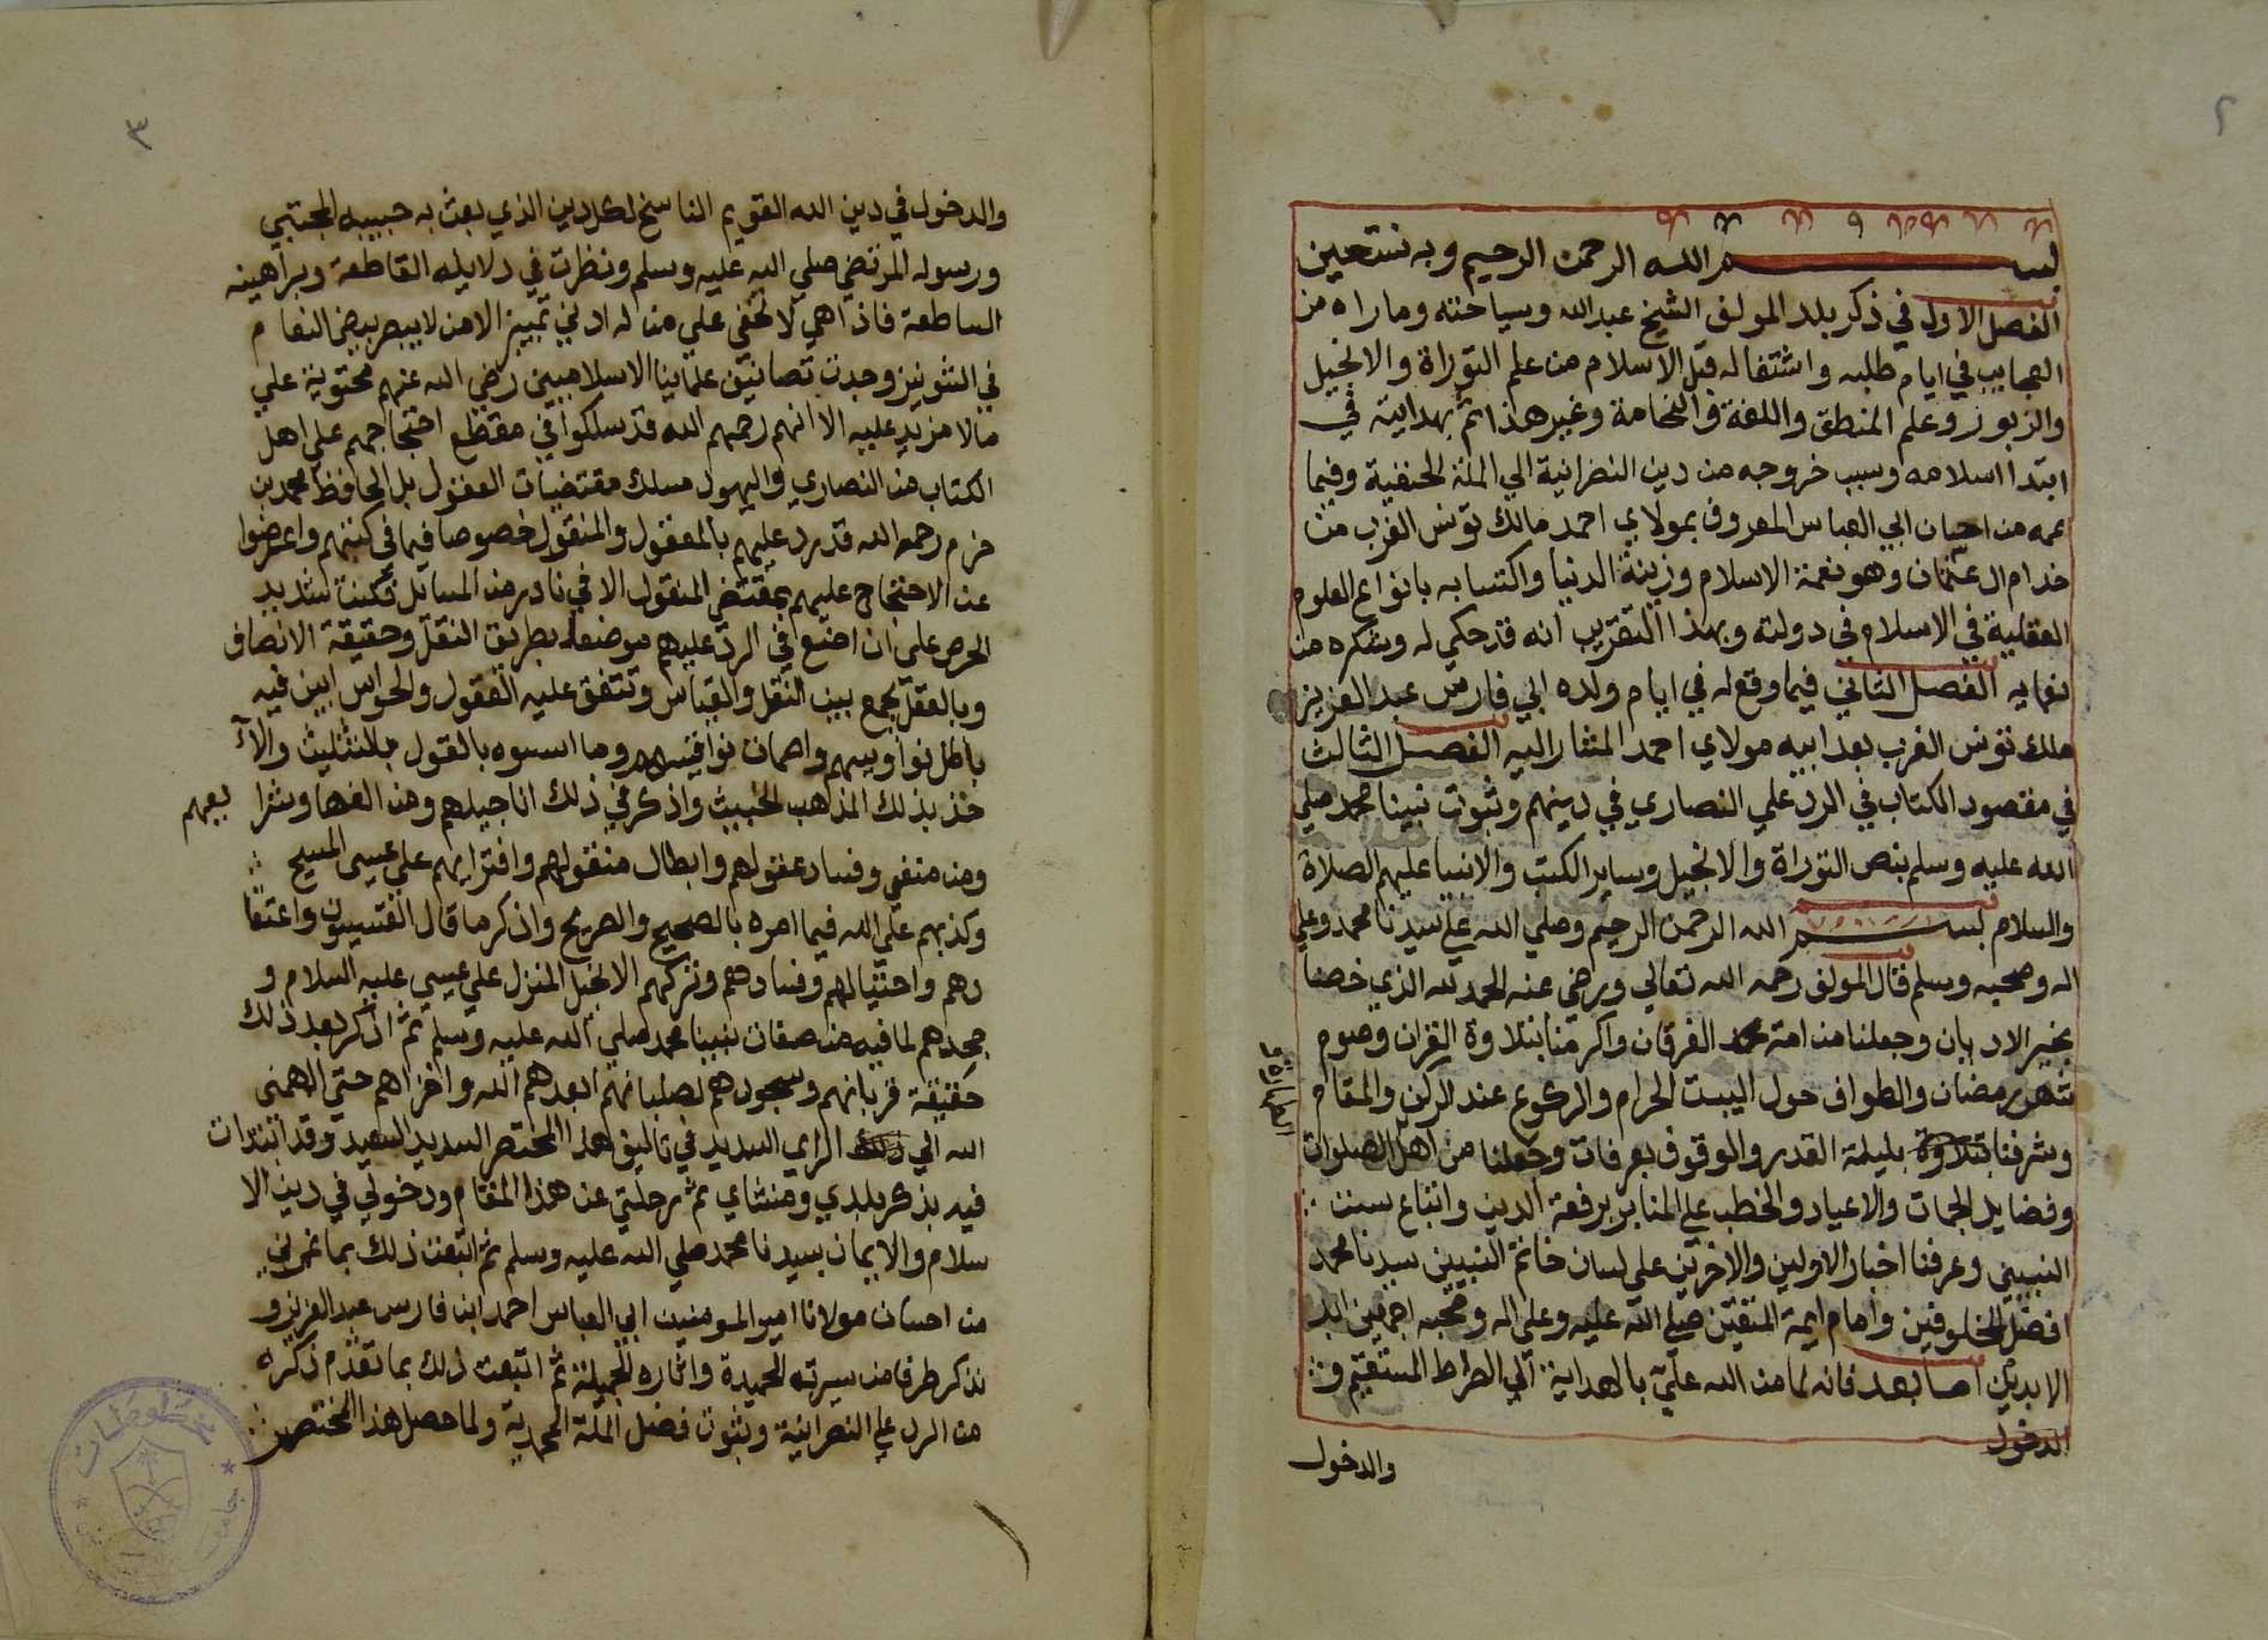 ٢
بسم الله الرحمن الرحيم وبه نستعين
الفصل الاول في ذكر بلد المولف الشيخ عبد الله وسياحته وما راه من
العجايب في ايام طلبه واشتغاله قبل الاسلام من علم التوراة والانجيل
والزبور وعلم المنطق واللغة والنحامة وغير هذا ثم بهدايته في
ابتدا اسلامه وسبب خروجه من دين النصرانية الي الملة الحنفية وفيما
عمه من احسان ابي العباس المعروف بمولاي احمد مالك تونس الغرب من
خدام ال عثمان وهو نعمة الاسلام وزينة الدنيا واكتسابه بانواع العلوم
العقلية في الاسلام في دولته وبهذا التقريب انه قد حكي له وشكره من
نعمايه الفصل الثاني فيما وقع له في ايام ولده ابي فارس عبد العزيز
ملك تونس الغرب بعد ابيه مولاي احمد المشار اليه الفصل الثالث
في مقصود الكتاب في الرد علي النصاري في دينهم وثبوت نبينا محمد صلي
الله عليه وسلم بنص التوراة والانجيل وساير الكتب والانبيا عليهم الصلاة
والسلام بسم الله الرحمن الرحيم وصلي الله علي سيدنا محمد وعلي
اله وصحبه وسلم قال المولف رحمه الله تعالي ورضي عنه الحمد لله الذي خصنا
بخير الاديان وجعلنا من امة محمد الفرقان واكرمنا بتلاوة القران وصوم
شهر رمضان والطواف حول البيت الحرام والركوع عند الركن والمقام
وشرفنا بتلاوة بليلة القدر والوقوف بعرفات وجعلنا من اهل الصلوات
وفضايل الجمات والاعياد والخطب علي المنابر برفعة الدين واتباع سنت
النبيين وعرفنا اخبار الاولين والاخرين علي لسان خاتم النبيين سيدنا محمد
افضل المخلوقين وامام ايمة المتقين صلي الله عليه وعلي اله وصحبه اجمعين ابد
الابدين اما بعد فانه لما من الله علي بالهداية الي الصراط المستقيم و
الدخول
والدخول
٣
والدخول في دين الله القويم الناسخ لكل دين الذي بعث به حبيبه المجتبي
ورسوله المرتضي صلي الله عليه وسلم ونظرت في دلايله القاطعة وبراهينه
الساطعة فاذا هي لا تخفي علي من له ادني تمييز الا من لا يبصر بيض النعام
في الشونيز وجدت تصانيف علماينا الاسلاميين رضي الله عنهم محتوية علي
مالا مزيد عليه الا انهم رحمهم الله قد سلكوا في مقطع احتجاجهم علي اهل
الكتاب من النصاري واليهود مسلك مقتضيات العقول بل الحافظ محمد بن
حزم رحمه الله قد رد عليهم بالمعقول والمنقول خصوصا فيما في كتبهم واعرضوا
عن الاحتجاج عليهم بمقتضي المنقول الا في نادر من المسايل فكنت شديد
الحرص علي ان اضع في الرد عليهم موضعا بطريق النقل وحقيقة الانصاف
وبالعقل يجمع بين النقل والقياس وتتفق عليه العقول والحواس ابين فيه
باطل
وما اسسوه بالقول بالتثليث والا
خذ بذلك المذهب الخبيث واذكر في ذلك اناجيلهم ومن الفها وشرا يعهم
ومن
وفساد عقولهم وابطال منقولهم وافترايهم علي عيسي المسيح
وكذبهم علي الله فيما امره بالصحيح والصريح واذكر ما قال القسيسون واعتقا
دهم واحتيالهم وفسادهم وتركهم الانجيل المنزل علي عيسي عليه السلام و
جحدهم لما فيه من صفات نبينا محمد صلي الله عليه وسلم ثم اذكر بعد ذلك
حقيقة قربانهم وسجودهم لصلبانهم ابعدهم الله واخزاهم حتي الهمني
الله الي ذلك الراي السديد في تاليف هذا المختصر السديد السعيد وقد ابتدات
فيه بذكر بلدي ومنشاي ثم رحلتي عن هذا المقام ودخولي في دين الا
سلام والايمان بسيدنا محمد صلي الله عليه وسلم ثم اتبعت ذلك بما غمرني
من احسان مولانا امير المومنين ابي العباس احمد ابن فارس عبد العزيز و
نذكر طرفا من سيرته الحميدة واثاره الجميلة ثم اتبعت ذلك بما تقدم ذكره
من الرد علي النصرانية وثبوت فضل الملة المحمدية ولما حصل هذا المختصر